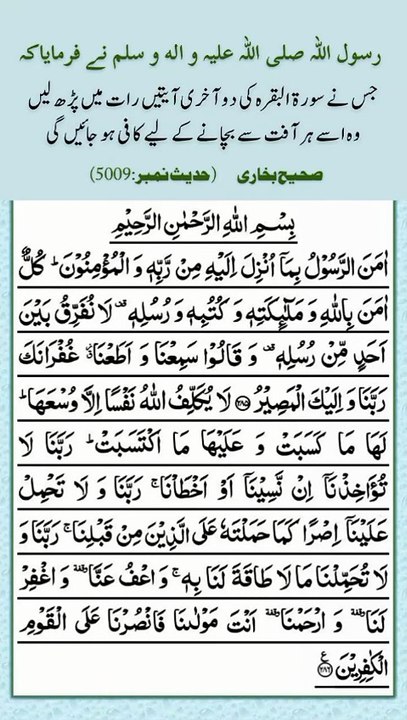 رسول اللہ صلی اللہ علیہ و الہ و سلم نے فرمایاکہ
جس نے سورۃ البقرہ کی دو آخری آیتیں رات میں پڑھ لیں
وہ اسے ہر آفت سے بچانے کے لیے کافی ہو جائیں گی
صحیح بخاری (حدیث نمبر: 5009)
بِسْمِ اللّٰهِ الرَّحْمٰنِ الرَّحِيْمِ
اٰمَنَ الرَّسُوْلُ بِمَاۤ اُنْزِلَ اِلَيْهِ مِنْ رَّبِّهٖ وَ الْمُؤْمِنُوْنَ ؕ كُلٌّ
اٰمَنَ بِاللّٰهِ وَ مَلٰٓىِٕكَتِهٖ وَ كُتُبِهٖ وَ رُسُلِهٖ ۫ لَا نُفَرِّقُ بَيْنَ
اَحَدٍ مِّنْ رُّسُلِهٖ ۫ وَ قَالُوْا سَمِعْنَا وَ اَطَعْنَا ٭ۗ غُفْرَانَكَ
رَبَّنَا وَ اِلَيْكَ الْمَصِيْرُ ﴿۲۸۵﴾ لَا يُكَلِّفُ اللّٰهُ نَفْسًا اِلَّا وُسْعَهَا ؕ
لَهَا مَا كَسَبَتْ وَ عَلَيْهَا مَا اكْتَسَبَتْ ؕ رَبَّنَا لَا
تُؤَاخِذْنَاۤ اِنْ نَّسِيْنَاۤ اَوْ اَخْطَاْنَا ۚ رَبَّنَا وَ لَا تَحْمِلْ
عَلَيْنَاۤ اِصْرًا كَمَا حَمَلْتَهٗ عَلَى الَّذِيْنَ مِنْ قَبْلِنَا ۚ رَبَّنَا وَ
لَا تُحَمِّلْنَا مَا لَا طَاقَةَ لَنَا بِهٖ ۚ وَ اعْفُ عَنَّا ٝ وَ اغْفِرْ
لَنَا ٝ وَ ارْحَمْنَا ٝ اَنْتَ مَوْلٰىنَا فَانْصُرْنَا عَلَى الْقَوْمِ
الْكٰفِرِيْنَ ﴿۲۸۶﴾ ع